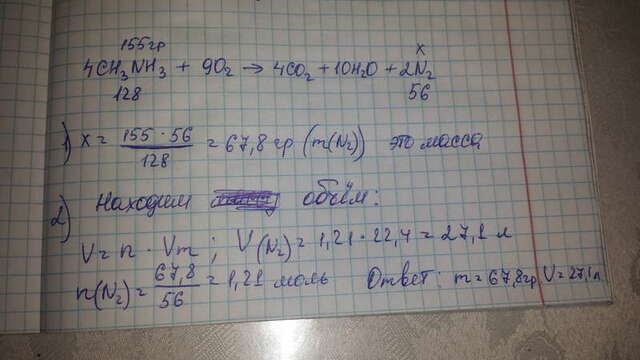 155гр x
4CH₃NH₃ + 9O₂ → 4CO₂ + 10H₂O + 2N₂
128 56
1) x = 155 · 56 / 128 = 67,8 гр (m(N₂)) это масса
2) Находим объём:
V = n · Vm ; V(N₂) = 1,21 · 22,4 = 27,1 л
n(N₂) = 67,8 / 56 = 1,21 моль Ответ: m = 67,8гр, V = 27,1л